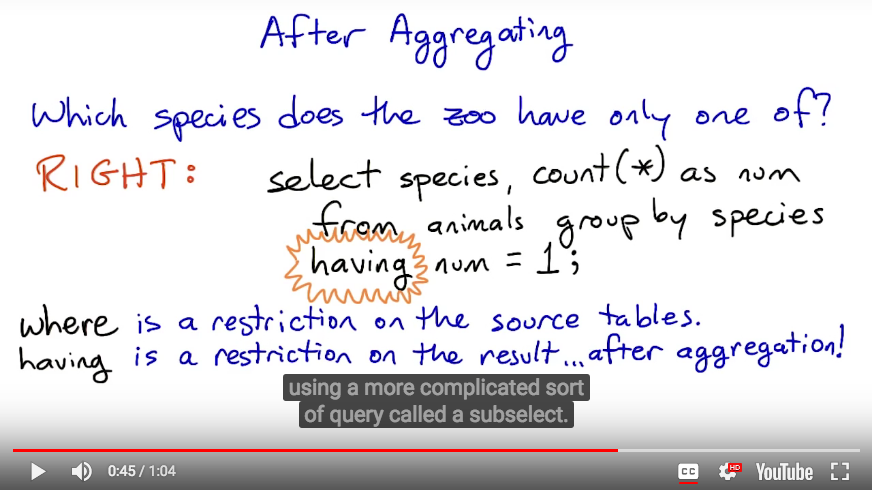 After Aggregating
Which species does the zoo have only one of?
RIGHT: select species, count(*) as num
from animals group by species
having num = 1;
where is a restriction on the source tables.
having is a restriction on the result...after aggregation!
using a more complicated sort
of query called a subselect.
0:45 / 1:04
CC
HD
YouTube